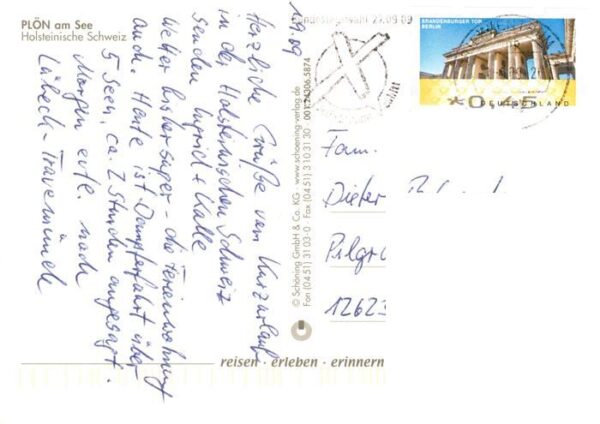 PLÖN am See
Holsteinische Schweiz
1.9.09
Herzliche Grüße vom Kurzurlaub
in der Holsteinischen Schweiz
senden Ingrid + Kalle
Wetter bisher super - die Ferienwohnung
auch. Heute ist Dampferfahrt über
5 Seen, ca. 2 Stunden angesagt.
Morgen evtl. nach
Lübeck-Travemünde
© Schöning GmbH & Co. KG · www.schoening-verlag.de
Fon (04 51) 3 10 3-0 Fax (04 51) 3 10 31 30 001 24306 5874
Bundestagswahl 27.09.09
BRANDENBURGER TOR
BERLIN
*0,45
DEUTSCHLAND
Fam.
Dieter
Pilgr
12623
reisen · erleben · erinnern